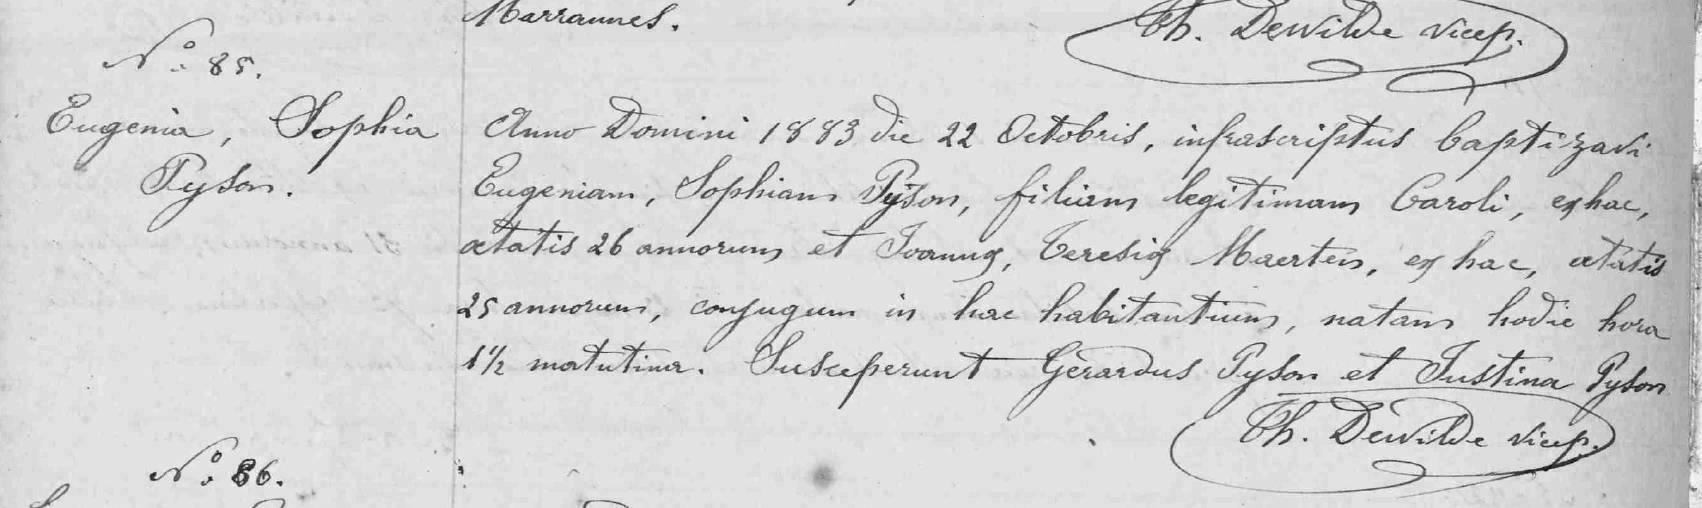 Marrannes.
Th. DeWilde vicep.
No. 85.
Eugenia, Sophia
Pyson.
Anno Domini 1883 die 22 Octobris, infrascriptus baptizavi
Eugeniam, Sophiam Pyson, filiam legitimam Caroli, ex hac,
ætatis 26 annorum et Joannæ, Teresiæ Maertens, ex hac, ætatis
25 annorum, conjugum in hac habitantium, natam hodie hora
1½ matutina. Susceperunt Gerardus Pyson et Justina Pyson
Th. DeWilde vicep.
No. 86.